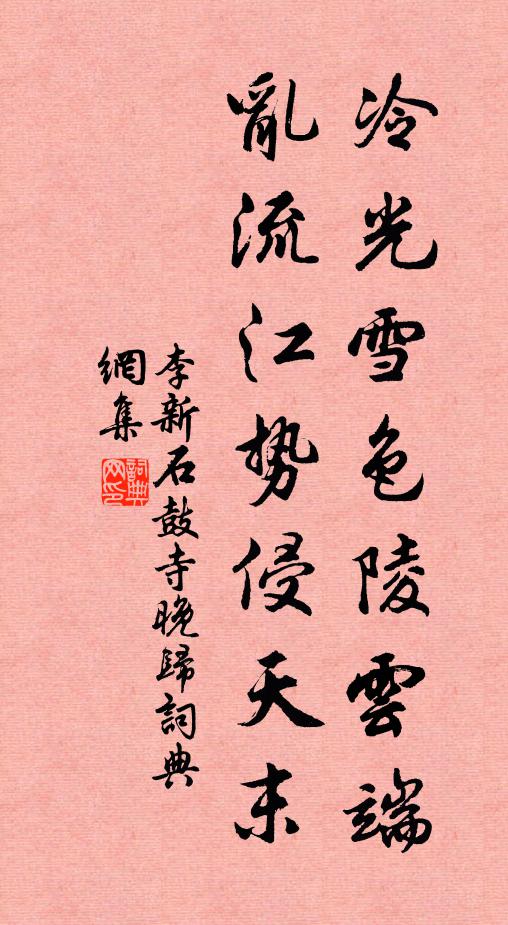 冷光雪色陵雲端
亂流江势侵天末
李新石鼓寺晚歸詞典
網集
詞典
网印